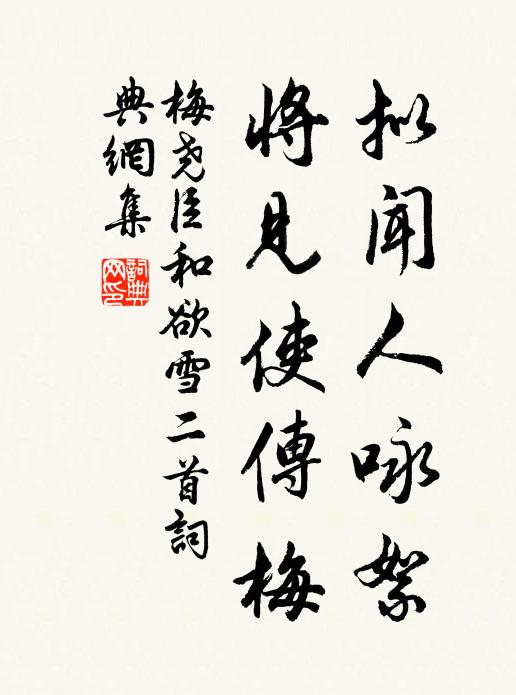 拟闻人咏絮
将见使傳梅
梅尧臣和欲雪二首詞
典網集
詞典网印